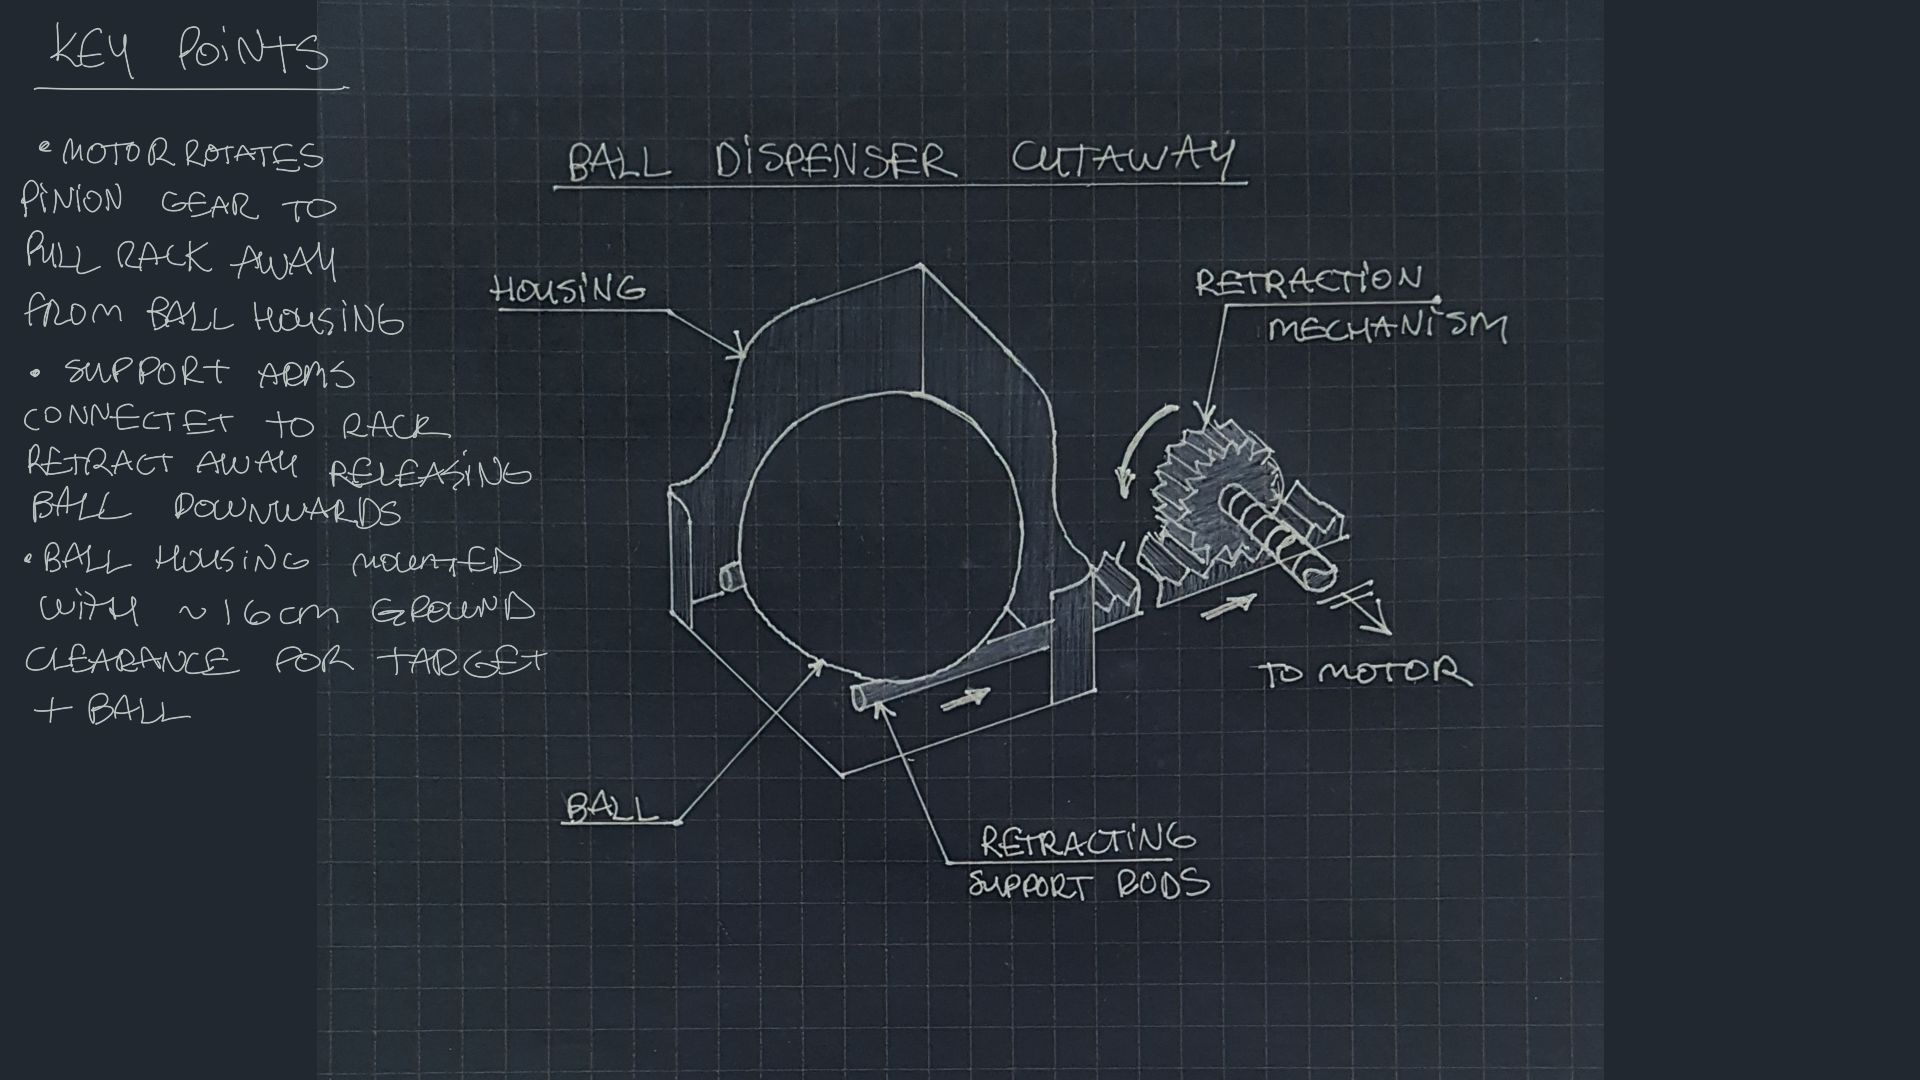 KEY POINTS
• MOTOR ROTATES
PINION GEAR TO
PULL RACK AWAY
FROM BALL HOUSING
• SUPPORT ARMS
CONNECTET TO RACK
RETRACT AWAY RELEASING
BALL DOWNWARDS
• BALL HOUSING MOUNTED
WITH ~16cm GROUND
CLEARANCE FOR TARGET
+ BALL
BALL DISPENSER CUTAWAY
HOUSING
RETRACTION
MECHANISM
TO MOTOR
BALL
RETRACTING
SUPPORT RODS